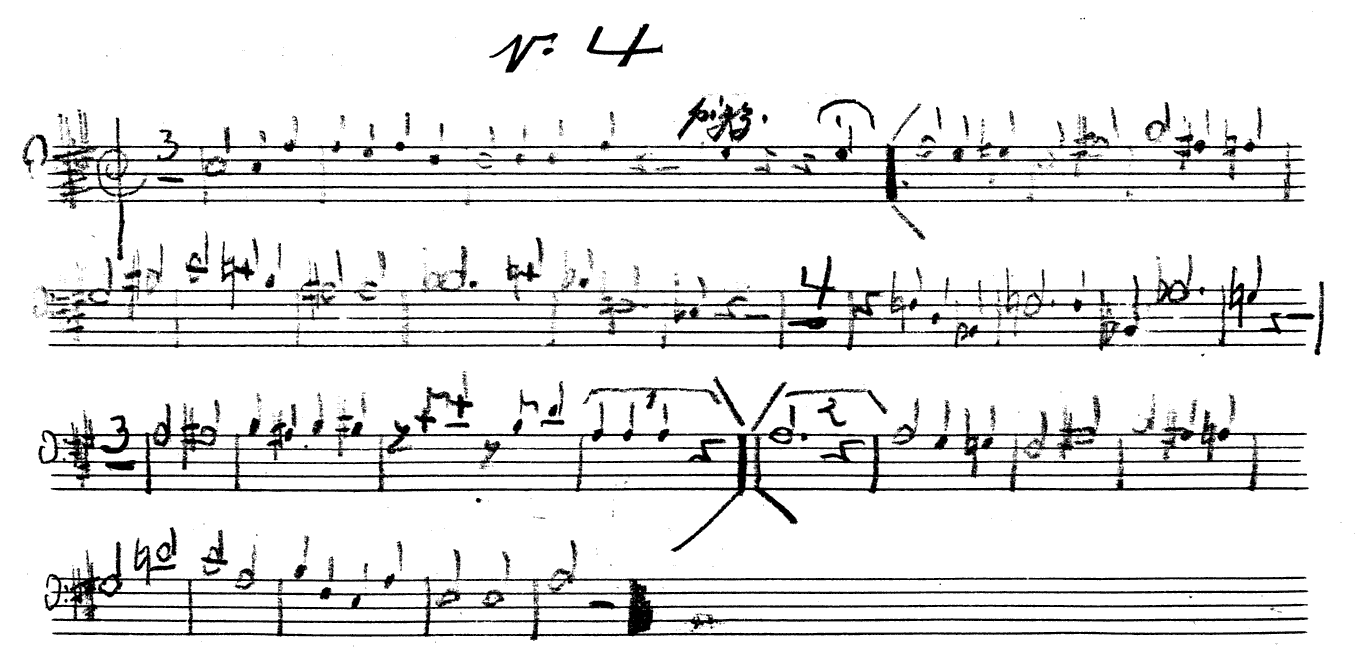 Nº 4
3
pizz.
4
3
1
2